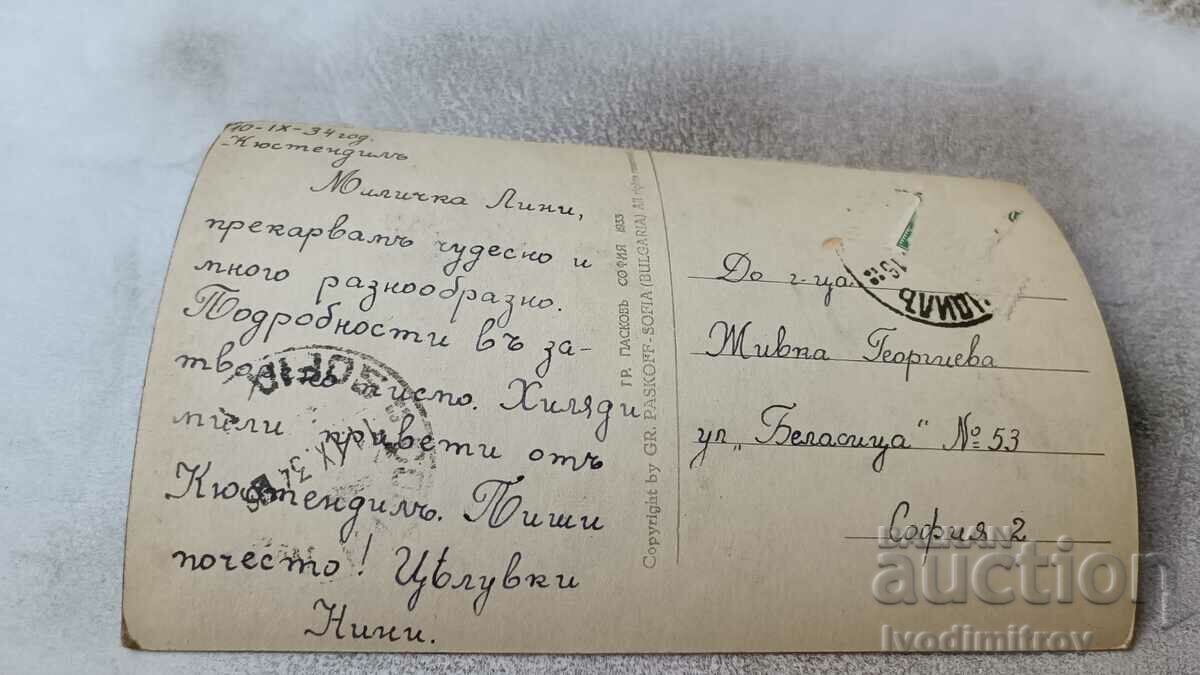 10-IX-34 год.
-Кюстендилъ
Миличка Лини,
прекарвамъ чудесно и
много разнообразно.
Подробности въ за-
творено писмо. Хиляди
мили привети отъ
Кюстендилъ. Пиши
почесто! Цѣлувки
Нини.
ГР. ПАСКОВЪ СОФИЯ 1933
Copyright by GR. PASKOFF-SOFIA (BULGARIA) All rights
До г-ца
Живка Георгиева
ул „Беласица“ № 53
София 2
ДИЛЪ
15
IX 34
BALKAN
auction
Ivodimitrov